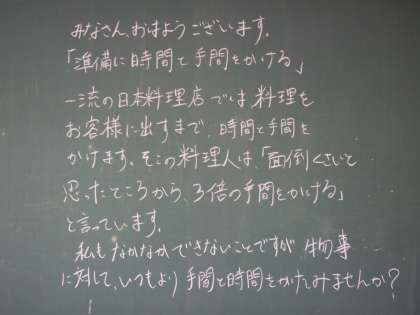 みなさん、おはようございます。
「準備に時間と手間をかける」
一流の日本料理店では料理を
お客様に出すまで、時間と手間を
かけます。そこの料理人は、「面倒くさいと
思ったところから、3倍の手間をかける」
と言っています。
私もなかなかできないことですが物事
に対して、いつもより手間と時間をかけてみませんか?